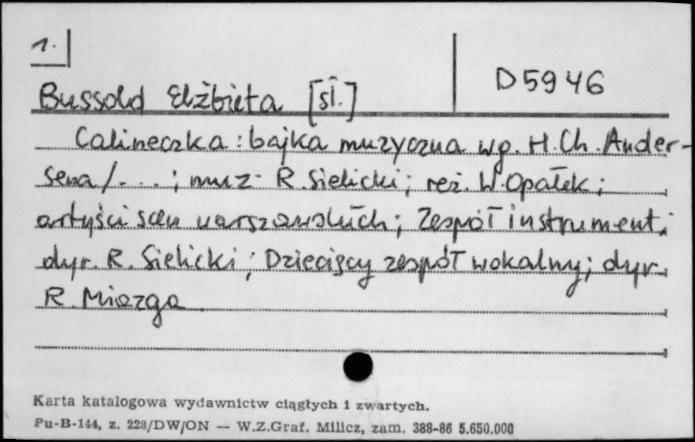 1.
D 5946
Bussold Elżbieta [sł.]
Calineczka : bajka muzyczna wg. H. Ch. Ander-
sena / . . . ; muz. R. Sielicki ; reż. W. Opałek ;
artyści scen warszawskich ; Zespół instrument. ;
dyr. R. Sielicki ; Dziecięcy zespół wokalny ; dyr.
R. Miazga
Karta katalogowa wydawnictw ciągłych i zwartych.
Pu-B-144, z. 228/DW/ON — W.Z.Graf. Milicz, zam. 388-86 5.650.000